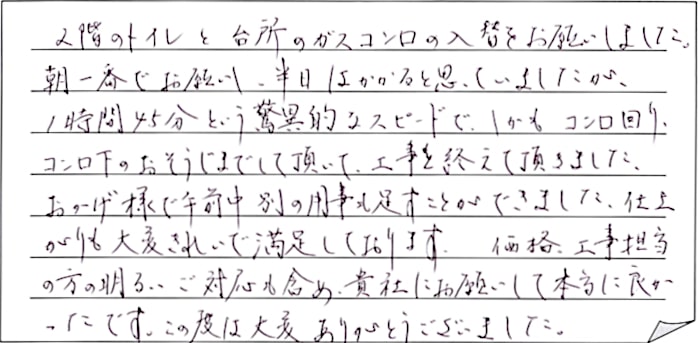 2階のトイレと台所のガスコンロの入替をお願いしました。
朝一番でお願いし、半日はかかると思っていましたが、
1時間45分という驚異的なスピードで、しかもコンロ回り、
コンロ下のおそうじまでして頂いて、工事を終えて頂きました。
おかげ様で午前中別の用事も足すことができました。仕上
がりも大変きれいで満足しております。 価格、工事担当
の方の明るいご対応も含め、貴社にお願いして本当に良か
ったです。この度は大変ありがとうございました。